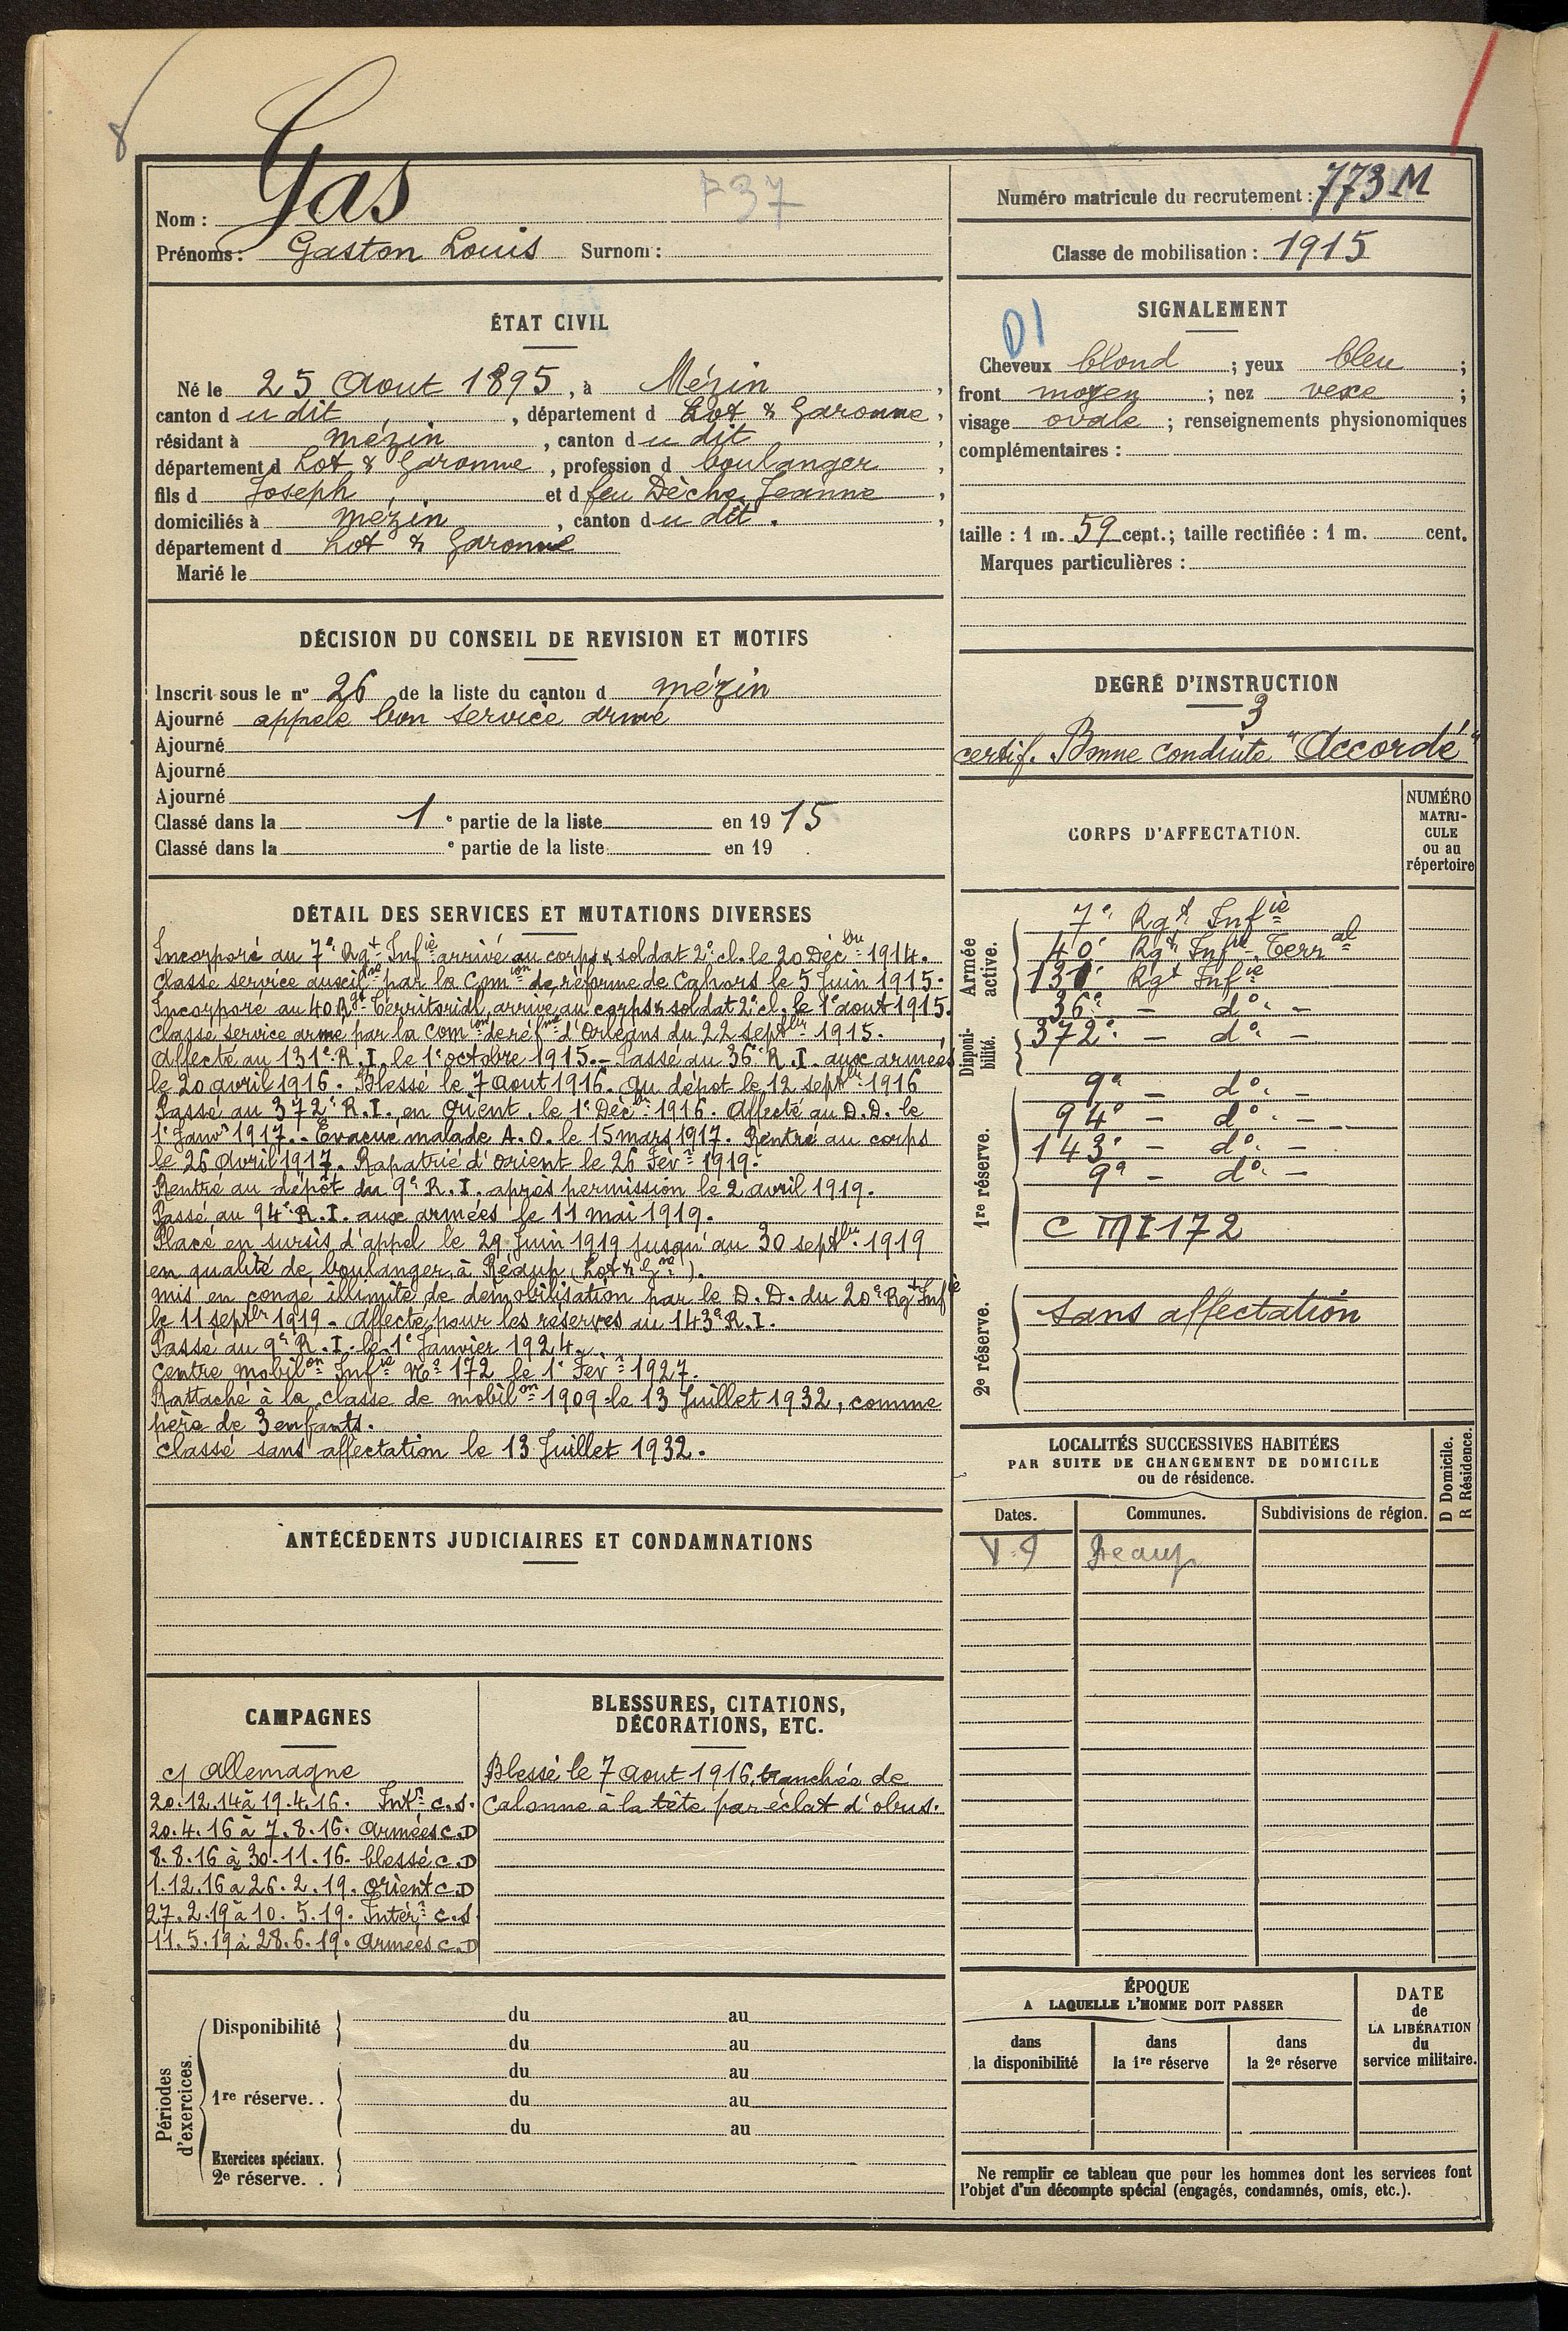 8
Nom : Gas
737
Prénoms : Gaston Louis Surnom :
ÉTAT CIVIL
Né le 25 Aout 1895, à Mézin,
canton d u dit, département d Lot & Garonne,
résidant à mézin, canton d u dit,
département d Lot & Garonne, profession d boulanger,
fils d Joseph, et d feu Dèche Jeanne,
domiciliés à mézin, canton d u dit.,
département d Lot & Garonne
Marié le
DÉCISION DU CONSEIL DE REVISION ET MOTIFS
Inscrit sous le nº 26 de la liste du canton d mézin
Ajourné appelé bon service armé
Ajourné
Ajourné
Ajourné
Classé dans la 1 e partie de la liste en 19 15
Classé dans la e partie de la liste en 19
DÉTAIL DES SERVICES ET MUTATIONS DIVERSES
Incorporé au 7e Rgt Infie arrivé au corps & soldat 2e cl. le 20 Décbre 1914.
Classé service auxilre par la Cmion de réforme de Cahors le 5 Juin 1915.
Incorporé au 40 Rgt Territorial, arrivé au corps & soldat 2e cl. le 1e aout 1915.
Classé service armé par la Comon de réfme d'Orléans du 22 septbre 1915.
Affecté au 131e R.I. le 1e octobre 1915. – Passé au 36e R.I. aux armées
le 20 avril 1916. Blessé le 7 Aout 1916. Au dépôt le 12 septbr 1916
Passé au 372e R.I. en Orient. le 1e Décbr 1916. Affecté au D.D. le
1e Janvr 1917. Evacué malade A.O. le 15 mars 1917. Rentré au corps
le 26 Avril 1917. Rapatrié d'Orient le 26 Févr 1919.
Rentré au dépôt du 9e R.I. après permission le 2 avril 1919.
Passé au 94e R.I. aux armées le 11 mai 1919.
Placé en sursis d'appel le 29 Juin 1919 jusqu'au 30 septbr 1919
en qualité de boulanger, à Réaup (Lot & Gne).
mis en congé illimité de démobilisation par le D.D. du 20e Rgt Infie
le 11 septbr 1919. Affecté pour les réserves au 143e R.I.
Passé au 9e R.I. le 1e Janvier 1924.
Centre mobilon Infie No 172 le 1e Fevr 1927.
Rattaché à la classe de mobilon 1909 le 13 Juillet 1932, comme
père de 3 enfants.
Classé sans affectation le 13 Juillet 1932.
ANTÉCÉDENTS JUDICIAIRES ET CONDAMNATIONS
CAMPAGNES
c/ Allemagne
20.12.14 à 19.4.16. Intr c.s.
20.4.16 à 7.8.16. Armées C.D
8.8.16 à 30.11.16. blessé C.D
1.12.16 à 26.2.19. Orient C.D
27.2.19 à 10.5.19. Intérr c.s.
11.5.19 à 28.6.19. Armées C.D
BLESSURES, CITATIONS,
DÉCORATIONS, ETC.
Blessé le 7 Aout 1916, tranchée de
Calonne à la tête par éclat d'obus.
Périodes d'exercices.
Disponibilité
du au
du au
1re réserve. .
du au
du au
du au
Exercices spéciaux.
2e réserve. .
Numéro matricule du recrutement : 773 M
Classe de mobilisation : 1915
SIGNALEMENT
D1
Cheveux blond ; yeux bleu ;
front moyen ; nez vexe ;
visage ovale ; renseignements physionomiques
complémentaires :
taille : 1 m. 59 cent.; taille rectifiée : 1 m. cent.
Marques particulières :
DEGRÉ D'INSTRUCTION
3
certif. Bonne conduite "Accordé"
CORPS D'AFFECTATION.
NUMÉRO
MATRI-
CULE
ou au
répertoire
Armée active.
7e Rgt Infie
40e Rgt Infie Terral
131e Rgt Infie
36e – do. –
Disponi-
bilité.
372e – do. –
1re réserve.
9e – do. –
94e – do. –
143e – do. –
9e – do. –
C M I 172
2e réserve.
sans affectation
LOCALITÉS SUCCESSIVES HABITÉES
PAR SUITE DE CHANGEMENT DE DOMICILE
ou de résidence.
D Domicile.
R Résidence.
Dates. Communes. Subdivisions de région.
Reaup
ÉPOQUE
A LAQUELLE L'HOMME DOIT PASSER
dans
la disponibilité
dans
la 1re réserve
dans
la 2e réserve
DATE
de
LA LIBÉRATION
du
service militaire.
Ne remplir ce tableau que pour les hommes dont les services font
l'objet d'un décompte spécial (engagés, condamnés, omis, etc.).